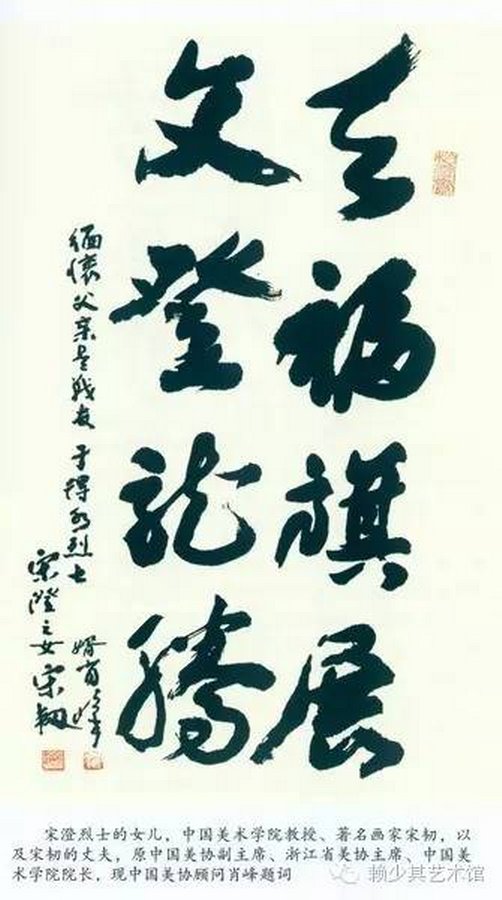 天福旗展
文登龙腾
缅懷父亲老战友于得水烈士
宋澄之女宋韧
婿肖峰
宋澄烈士的女儿，中国美术学院教授、著名画家宋韧，以
及宋韧的丈夫，原中国美协副主席、浙江省美协主席、中国美
术学院院长，现中国美协顾问肖峰题词
赖少其艺术馆